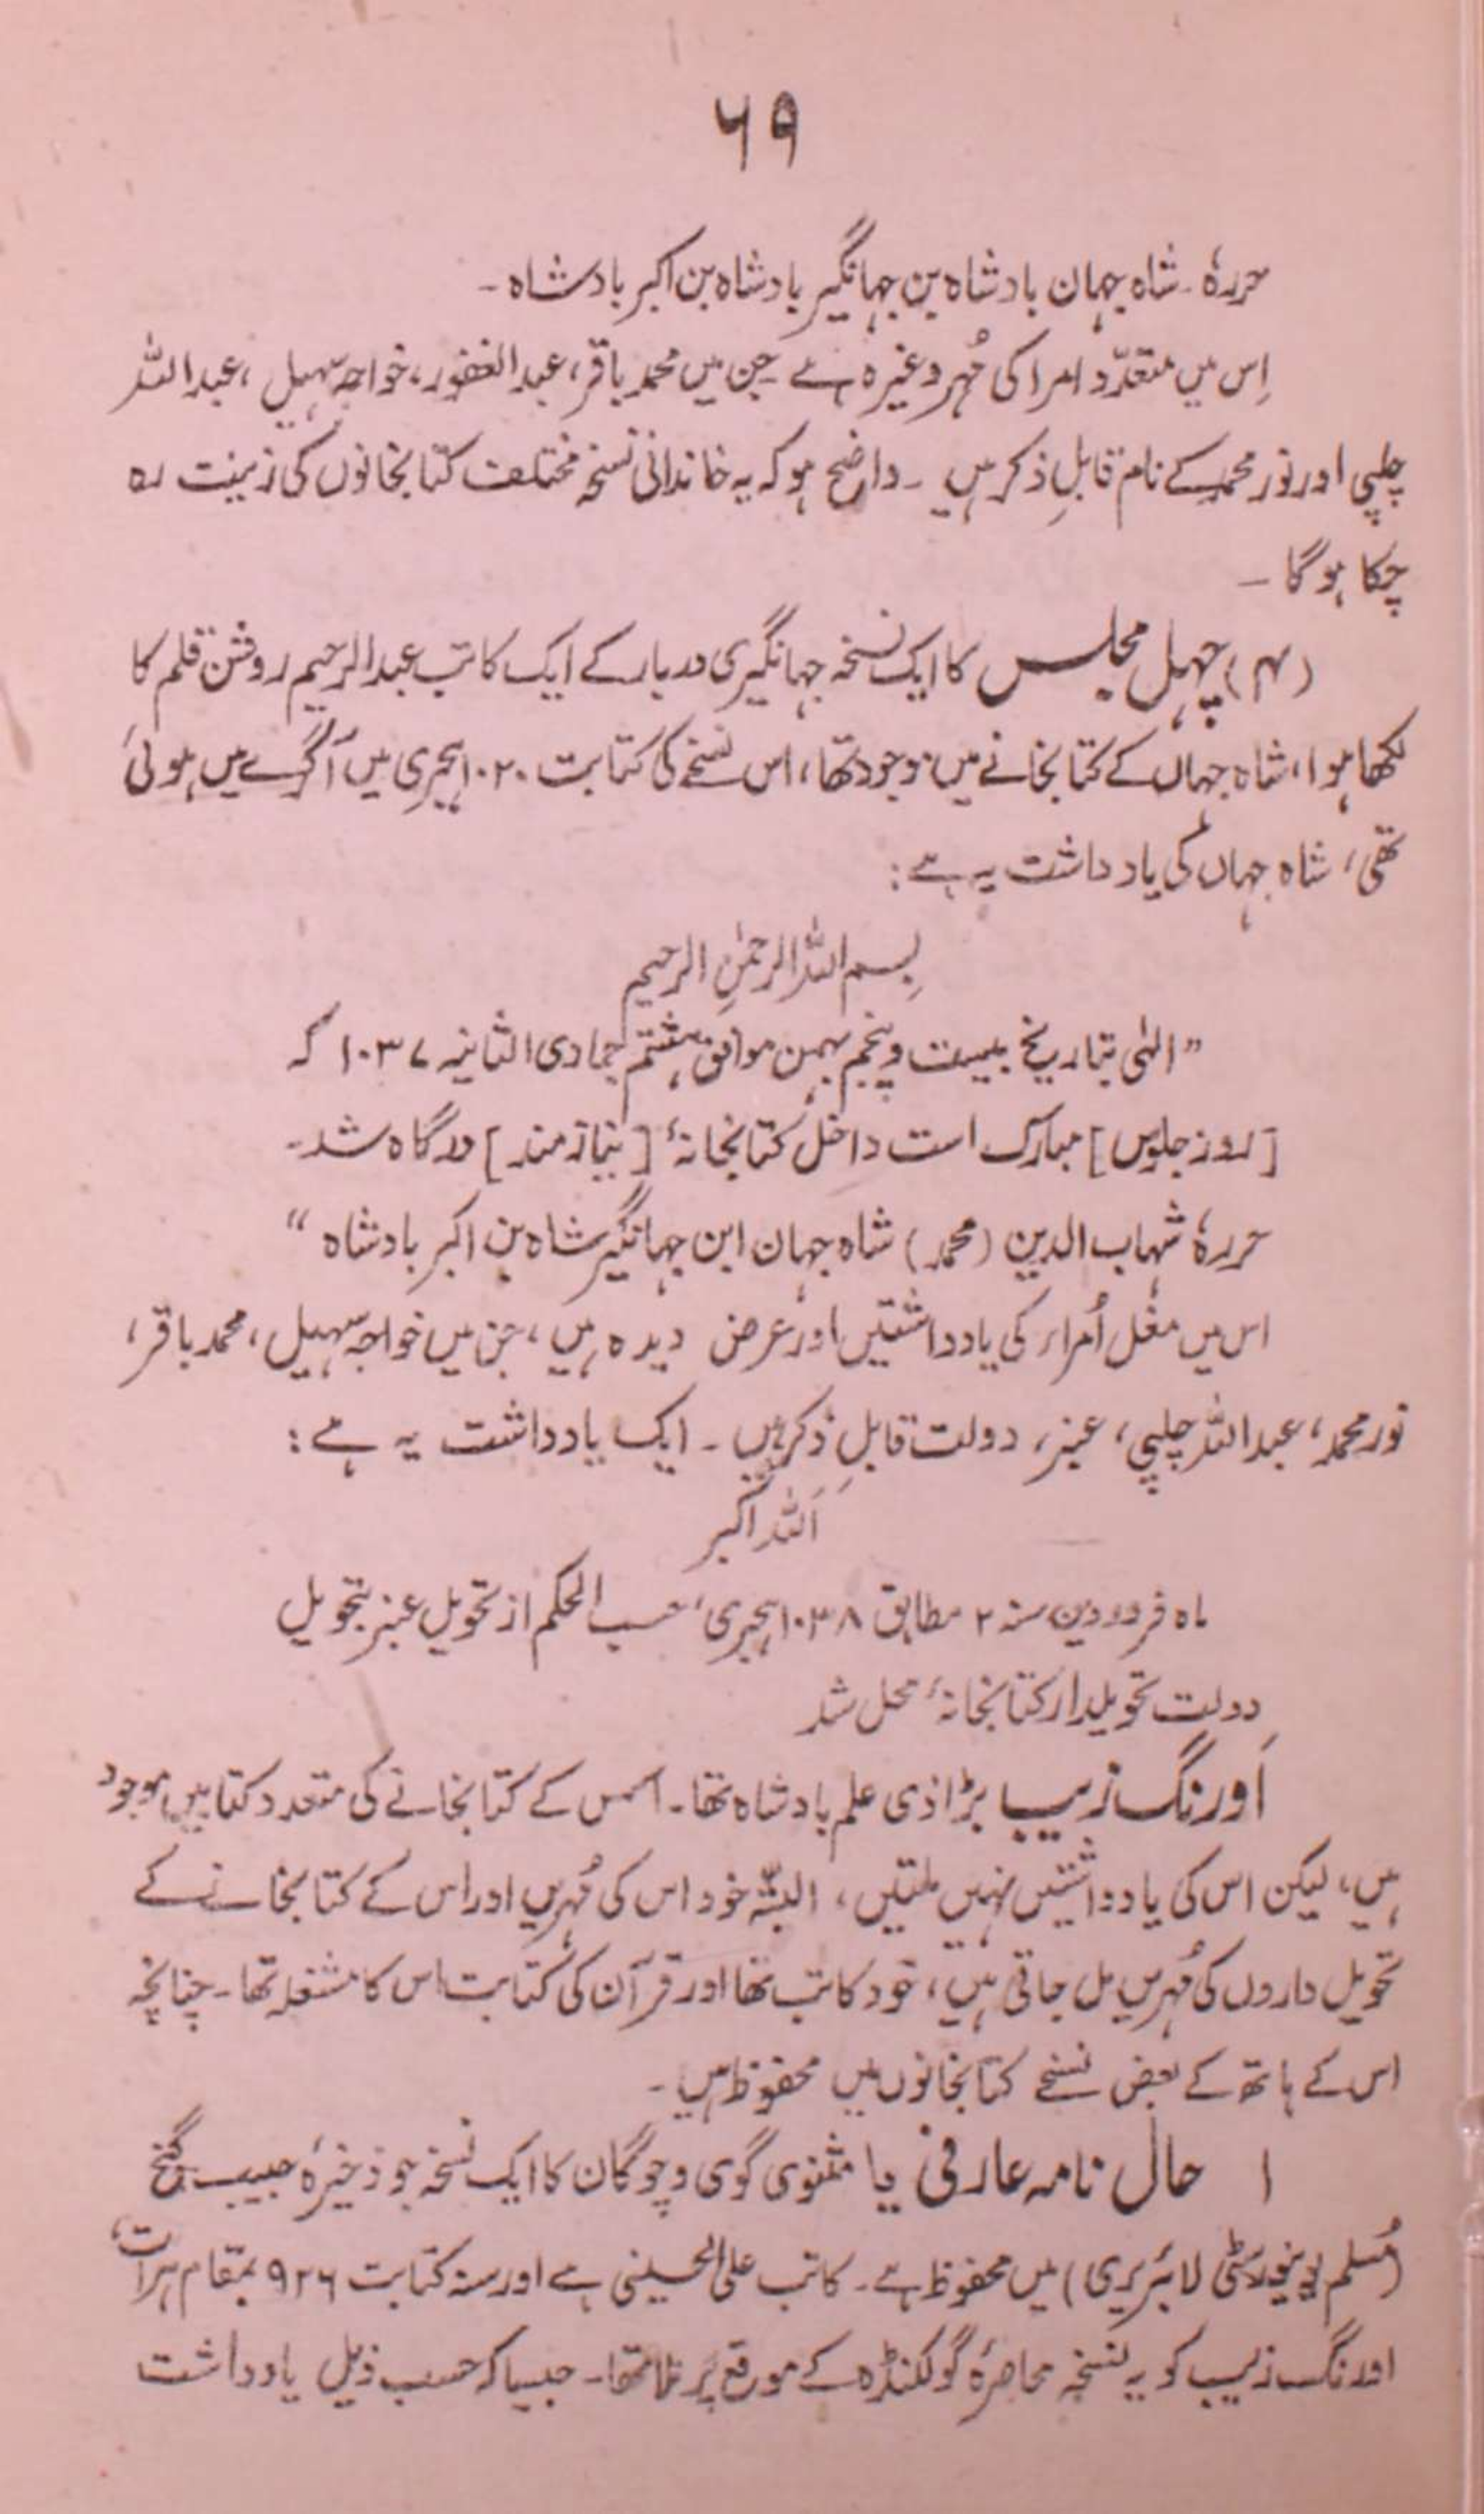 ۶۹
حررہٗ ۔ شاہ جہان بادشاہ بن جہانگیر بادشاہ بن اکبر بادشاہ ۔
اِس میں متعدّد امرا کی مُہر وغیرہ ہے جن میں محمد باقر، عبد الغفور، خواجہ سہیل، عبد اللہ
چلپی اور نور محمد کے نام قابلِ ذکر ہیں ۔ واضح ہو کہ یہ خاندانی نسخہ مختلف کتابخانوں کی زینت رہ
چکا ہوگا ۔
(۴) چہل مجلس کا ایک نسخہ جہانگیری دربار کے ایک کاتب عبد الرحیم روشن قلم کا
لکھا ہوا، شاہ جہاں کے کتابخانے میں موجود تھا، اس نسخے کی کتابت ۱۰۲۰ ہجری میں آگرے میں ہوئی
تھی، شاہ جہاں کی یاد داشت یہ ہے :
بِسم اللہ الرحمٰنِ الرحیم
” الٰہی بتاریخ بیست و پنجم بہمن موافق ہشتم جمادی الثانیہ ۱۰۳۷ کہ
[روز جلوس] مبارک است داخل کتابخانۂ [نیازمند] درگاہ شد ۔
حررہٗ شہاب الدین (محمد) شاہ جہان ابن جہانگیر شاہ بن اکبر بادشاہ “
اس میں مغل اُمراء کی یادداشتیں اور عرض دیدہ ہیں، جن میں خواجہ سہیل، محمد باقر،
نور محمد، عبد اللہ چلپی، عنبر، دولت قابلِ ذکر ہیں ۔ ایک یادداشت یہ ہے :
اَللہ اکبر
ماہ فروردین سنہ ۲ مطابق ۱۰۳۸ ہجری، حسب الحکم از تحویل عنبر بتحویل
دولت تحویلدار کتابخانۂ محل شد
اَورنگ زیب بڑا ذی علم بادشاہ تھا ۔ اس کے کتابخانے کی متعدد کتابیں موجود
ہیں، لیکن اس کی یادداشتیں نہیں ملتیں، البتّہ خود اس کی مُہریں اور اس کے کتابخانے کے
تحویل داروں کی مُہریں مل جاتی ہیں، خود کاتب تھا اور قرآن کی کتابت اس کا مشغلہ تھا ۔ چنانچہ
اس کے ہاتھ کے بعض نسخے کتابخانوں میں محفوظ ہیں ۔
۱ حال نامہ عارفی یا مثنوی گوی و چوگان کا ایک نسخہ جو ذخیرۂ حبیب گنج
(مُسلم یونیورسٹی لائبریری) میں محفوظ ہے ۔ کاتب علی الحسینی ہے اور سنہ کتابت ۹۲۶ بمقام ہرات،
اورنگ زیب کو یہ نسخہ محاصرۂ گولکنڈہ کے موقع پر ملا تھا ۔ جیسا کہ حسب ذیل یادداشت